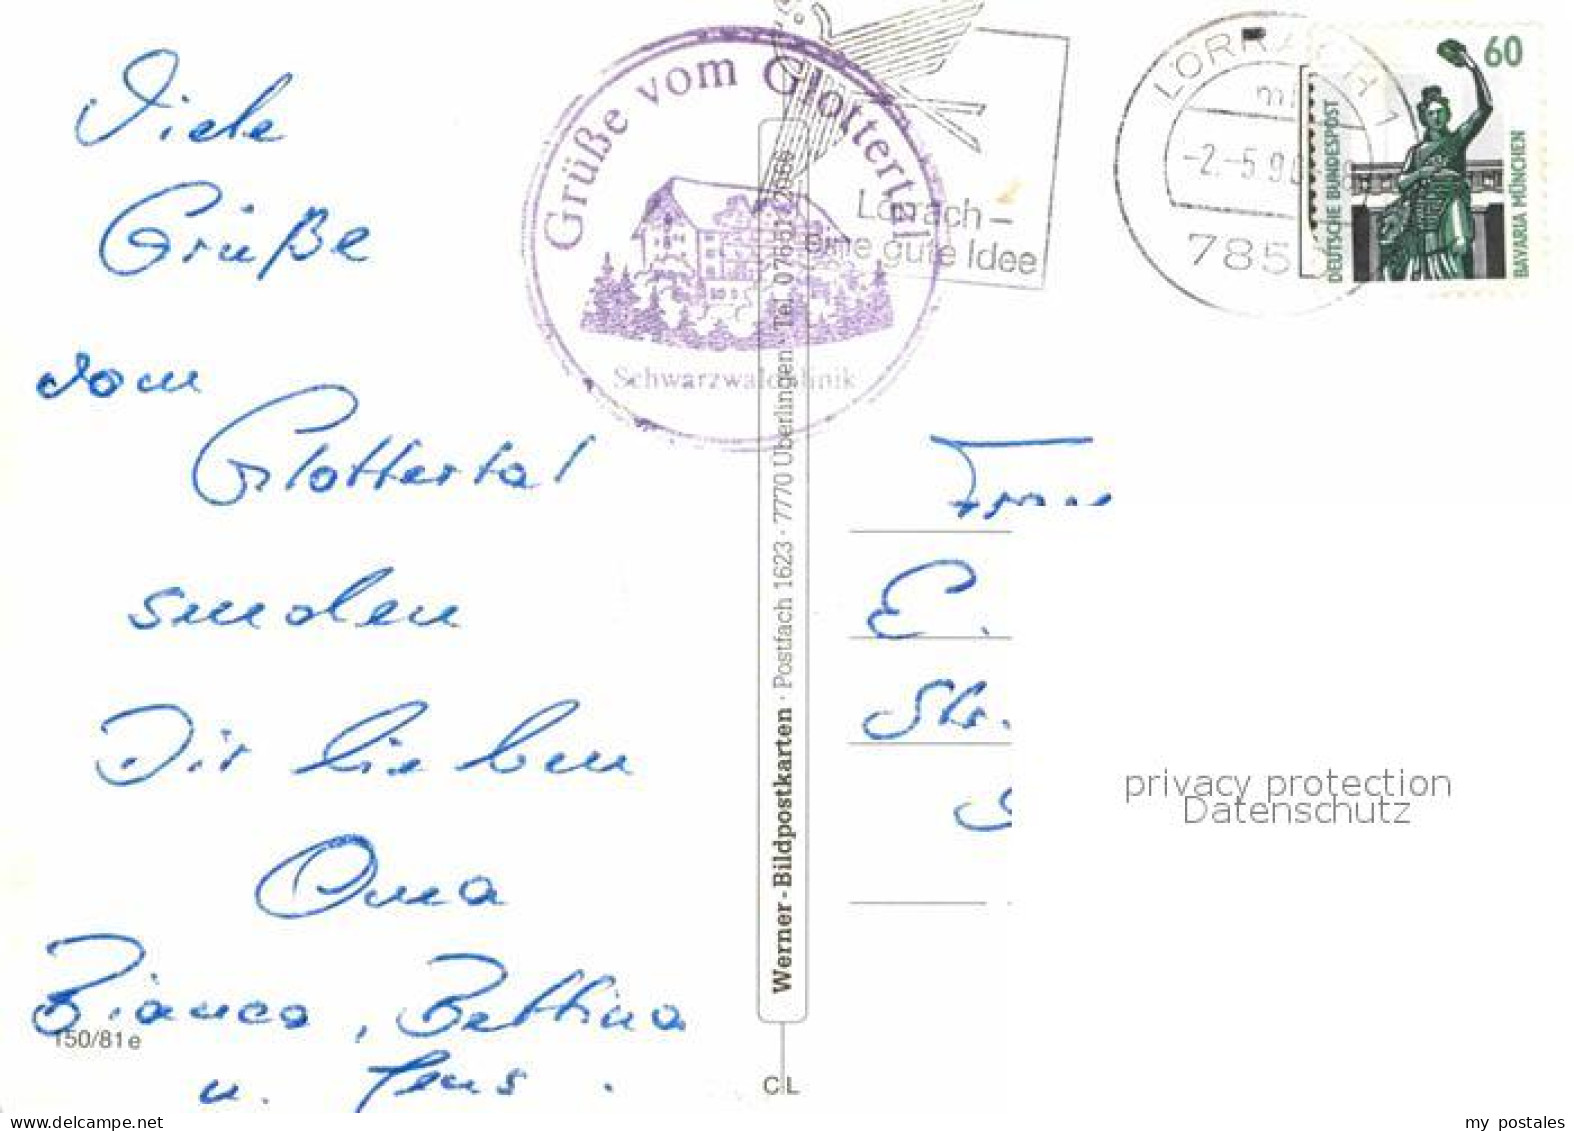 Viele
Grüße
vom
Glottertal
senden
Dir lieben
Oma
Bianca, Bettina
u. Jens.
150/81e
Grüße vom Glottertal
Schwarzwaldklinik
Lörrach -
eine gute Idee
LÖRRACH 1
-2.-5.90
785
60
DEUTSCHE BUNDESPOST
BAVARIA MÜNCHEN
Werner-Bildpostkarten · Postfach 1623 · 7770 Überlingen · Tel.
CL
E.
Str.
privacy protection
Datenschutz
www.delcampe.net
my postales